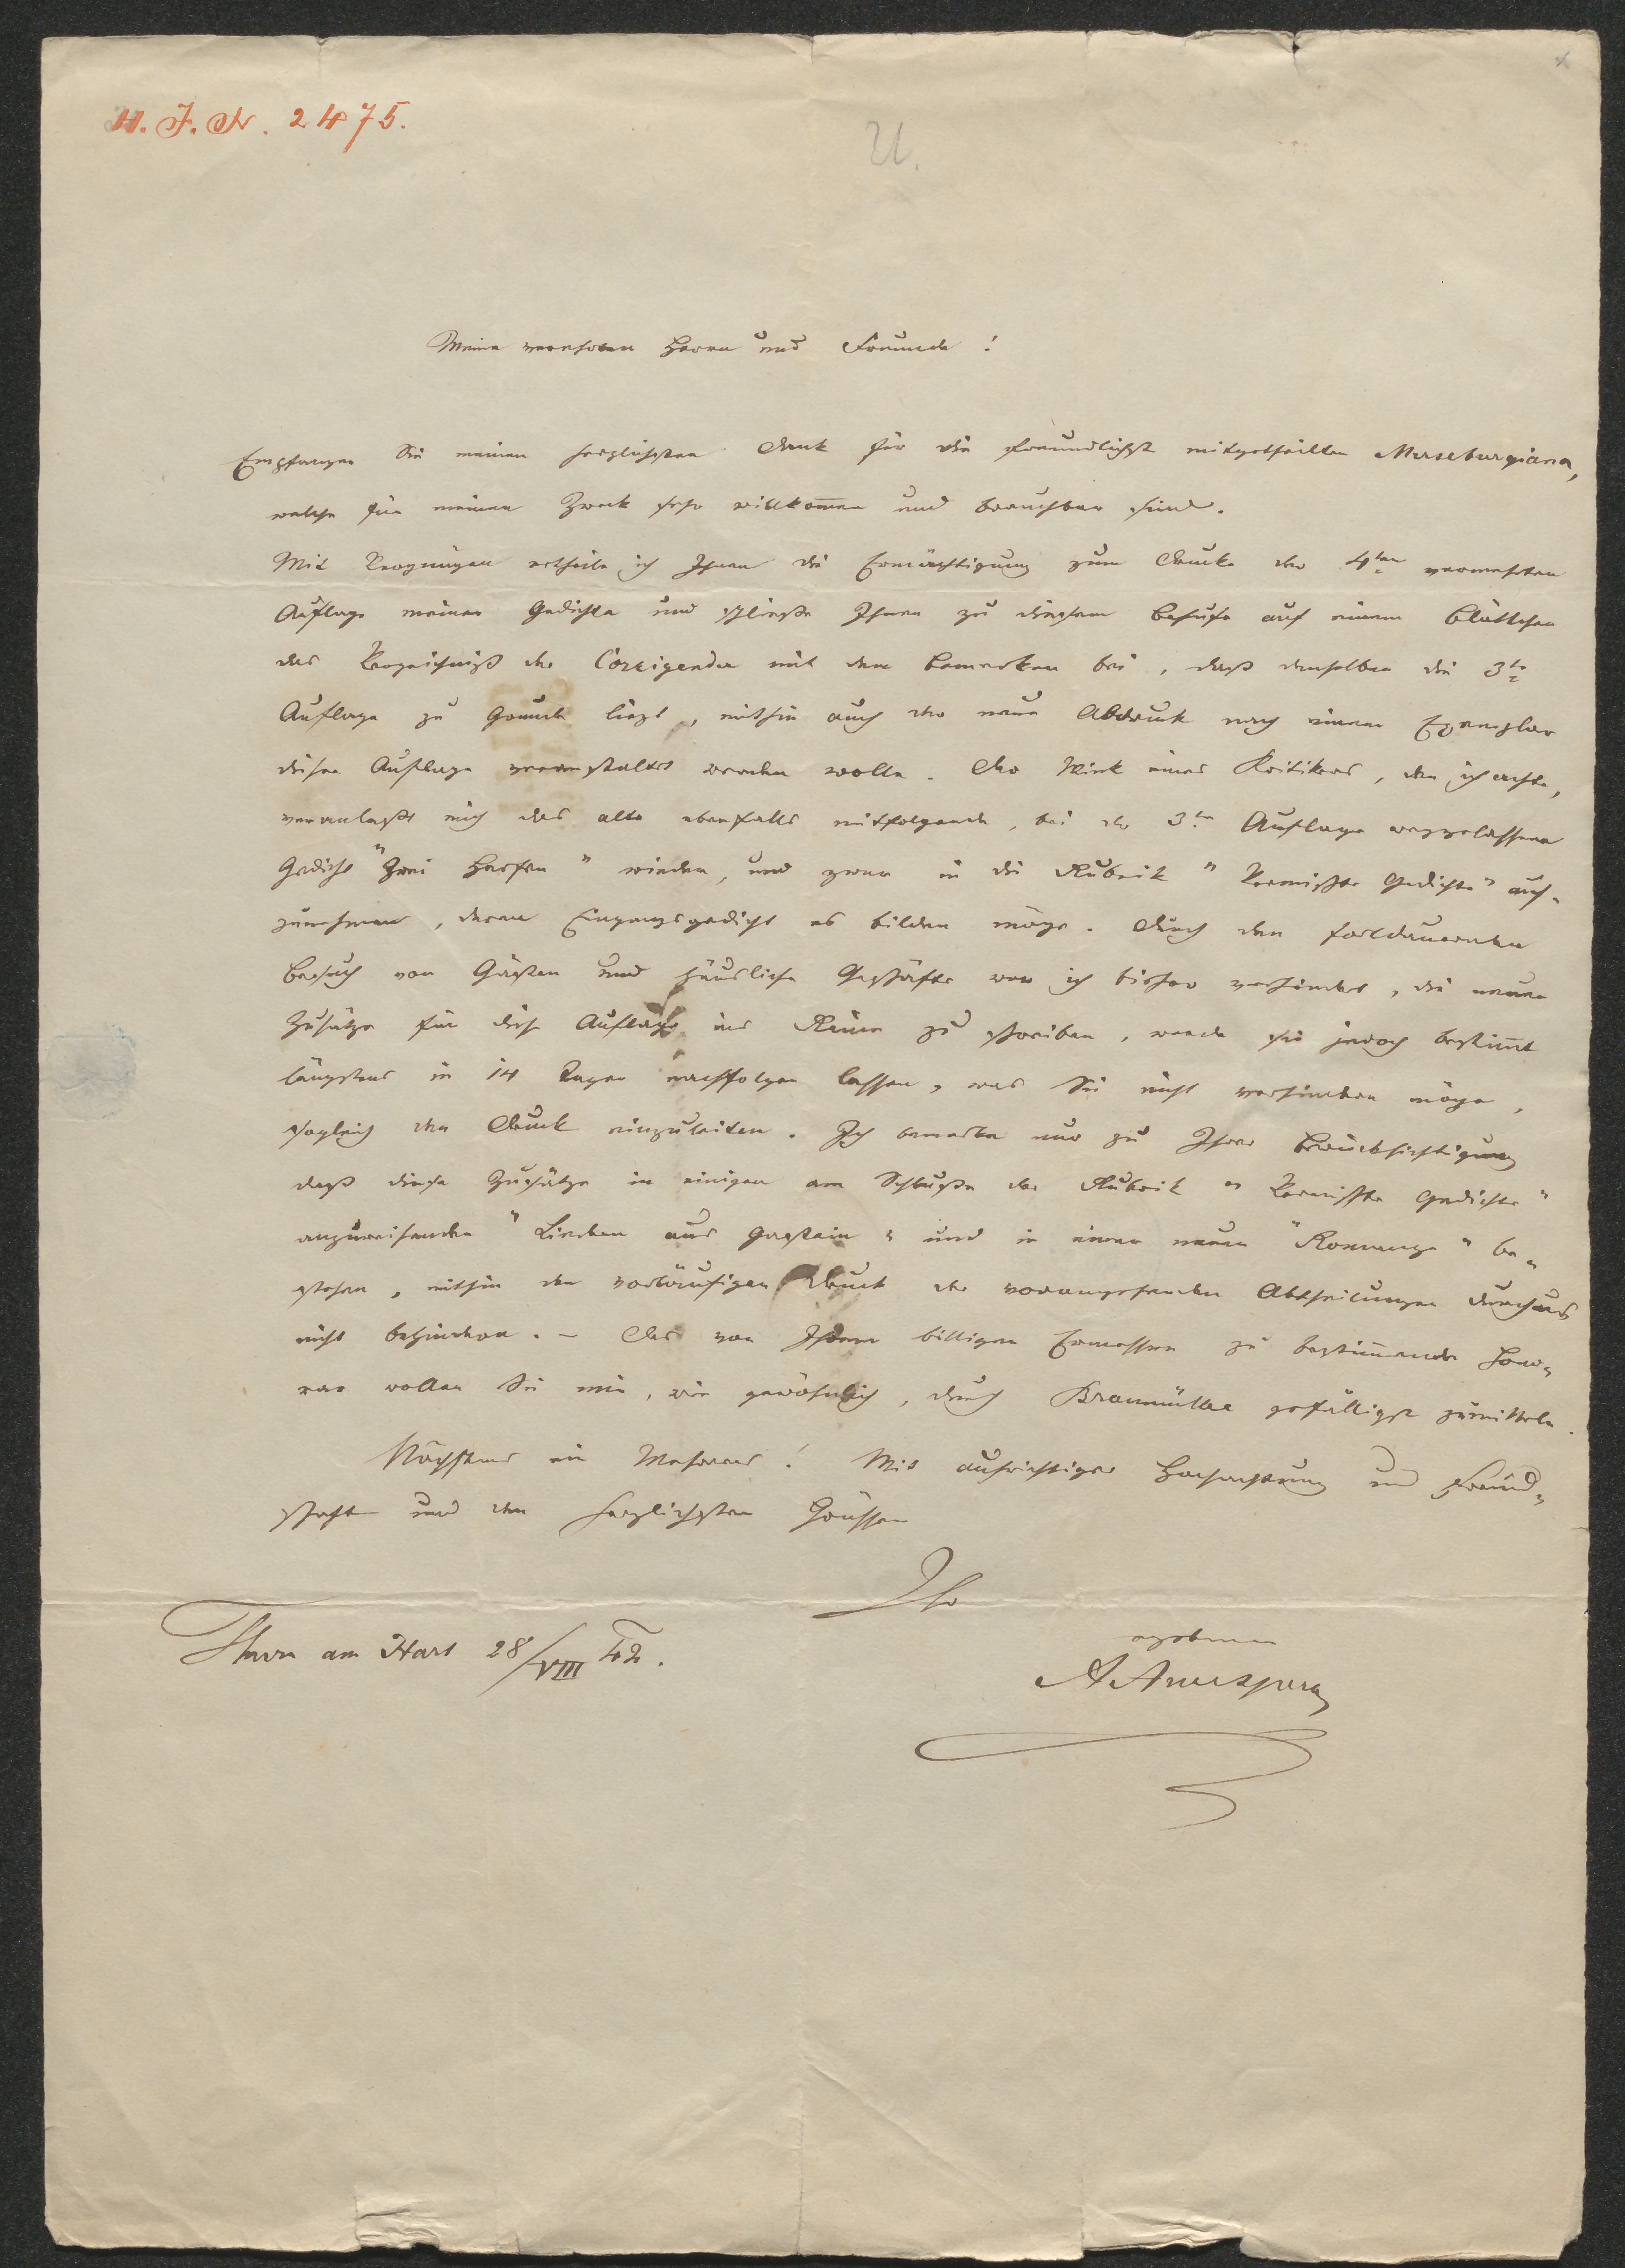 H. J. N. 2475.
U.
Meine verehrten Herrn und Freunde!
Empfangen Sie meinen herzlichsten Dank für die freundlichst mitgetheilten Merseburgiana,
welche für meinen Zweck sehr willkom̄en und brauchbar sind.
Mit Vergnügen ertheile ich Ihnen die Ermächtigung zum Drucke der 4ten vermehrten
Auflage meiner Gedichte und schließe Ihnen zu diesem Behufe auf einem Blättchen
das Verzeichniß der Corrigenda mit dem Bemerken bei, daß denselben die 3te
Auflage zu Grunde liegt, mithin auch der neue Abdruck nach einem Exemplar
dieser Auflage veranstaltet werden wolle. Der Wink eines Kritikers, den ich achte,
veranlaßt mich das alte ebenfalls mitfolgende, bei der 3ten Auflage weggelassene
Gedicht "Zwei Harfen" wieder, und zwar in die Rubrik "Vermischte Gedichte" auf-
zunehmen, deren Eingangsgedicht es bilden möge. Durch den fortdauernden
Besuch von Gästen und häusliche Geschäfte war ich bisher verhindert, die neuen
Zusätze für diese Auflage ins Reine zu schreiben, werde sie jedoch bestim̄t
längstens in 14 Tagen nachfolgen lassen, was Sie nicht verhindern möge,
sogleich den Druck einzuleiten. Ich bemerke nur zu Ihrer Berücksichtigung
daß diese Zusätze in einigen am Schluße der Rubrik "Vermischte Gedichte"
anzureihenden "Liedern aus Gastein" und in einer neuen "Romanze" be-
stehen, mithin den vorläufigen Druck der vorangehenden Abtheilungen durchaus
nicht behindern. – Das von Ihrem billigen Ermessen zu bestim̄ende Hono-
rar wollen Sie mir, wie gewöhnlich, durch Braumüller gefälligst zumitteln.
Nächstens ein Mehreres! Mit aufrichtiger Hochachtung und Freund-
schaft und den herzlichsten Grüssen
Ihr
ergebener
A Auersperg
Thurn am Hart 28/VIII 42.